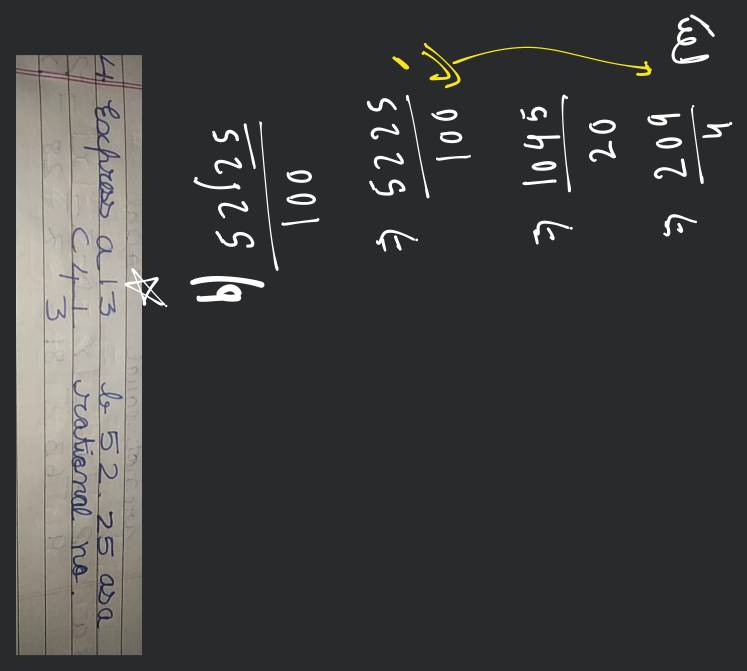 4 Express a 13 b 52.25 as a
c 4 1/3 rational no.
b) 52.25
100
⇒ 5225
100
⇒ 1045
20
⇒ 209
4